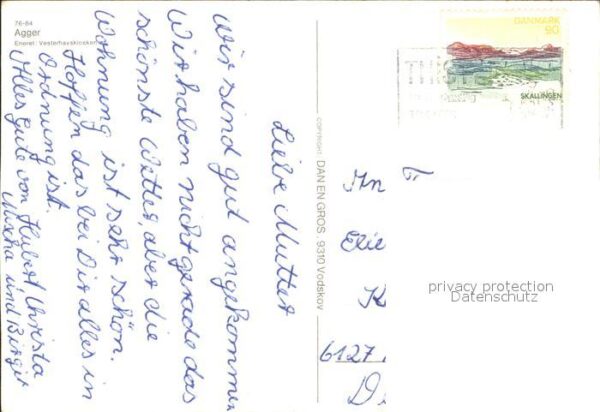 76-84
Agger
Eneret: Vesterhavskiosken
Liebe Mutter
Wir sind gut angekommen
Wir haben nicht gerade das
schönste Wetter, aber die
Wohnung ist sehr schön.
Hoffen das bei Dir alles in
Ordnung ist.
Alles Gute von Hubert Christa
Mischa und Birgit
COPYRIGHT DAN EN GROS 9310 Vodskov
DANMARK
90
SKALLINGEN
TH
An F
Elie
K
6127
D
privacy protection
Datenschutz